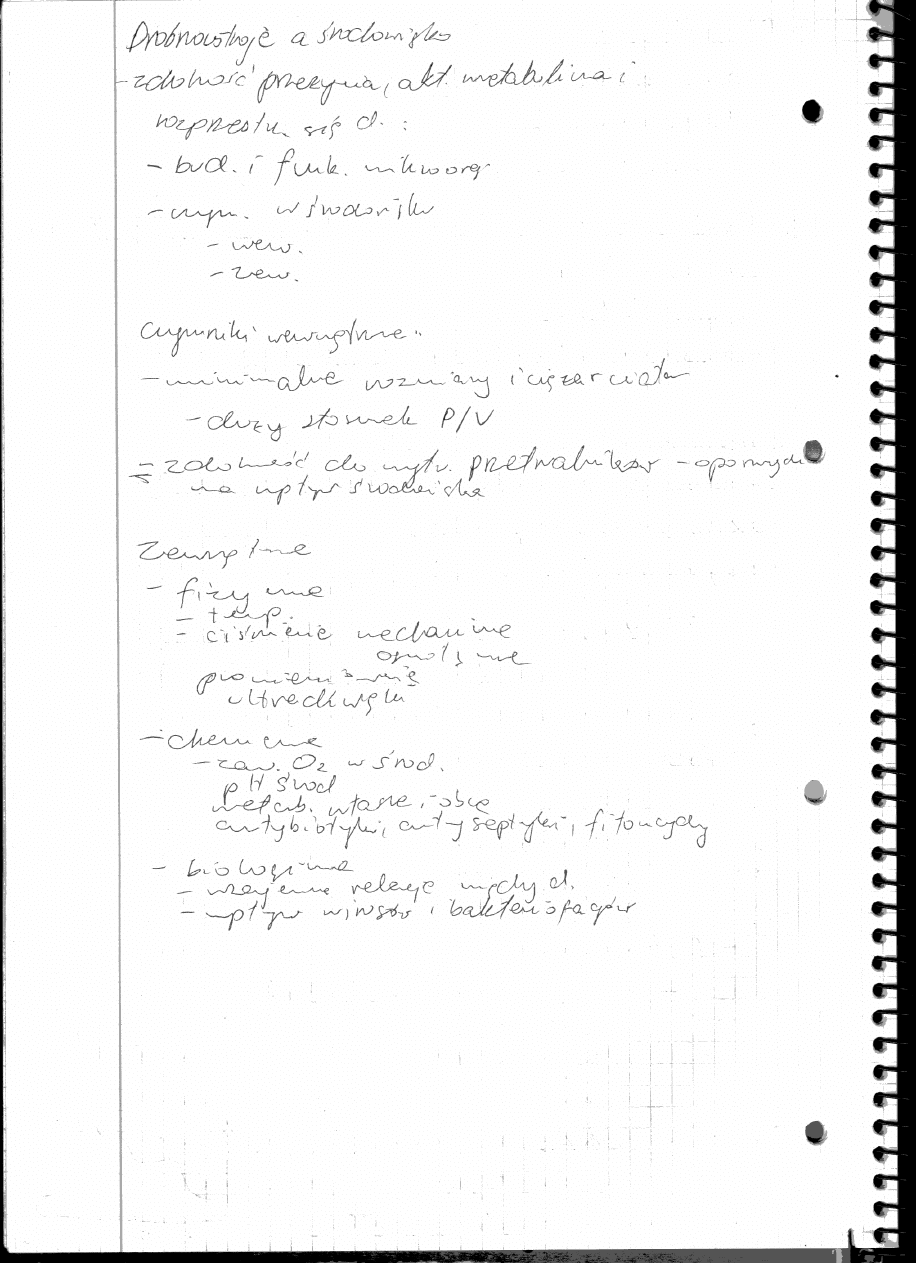 Drobnoustroje a środowisko
- zdolność przeżycia, akt. metaboliczna i
rozprestrz. się d. :
- bud. i funk. mikroorg
- czyn. w środowisku
- wew.
- zew.
Czynniki wewnętrzne:
- minimalne rozmiary i ciężar ciała
- duży stosunek P/V
- zdolność do wytw. przetrwalników - opornych
na wpływ środowiska
Zewnętrzne
- fizyczne
- temp.
- ciśnienie mechaniczne
osmotyczne
promieniowanie
ultradźwięki
- chemiczne
- zaw. O₂ w środ.
pH środ
metab. własne i obce
antybiotyki, antyseptyki, fitoncydy
- biologiczne
- wzajemne relacje między d.
- wpływ wirusów i bakteriofagów